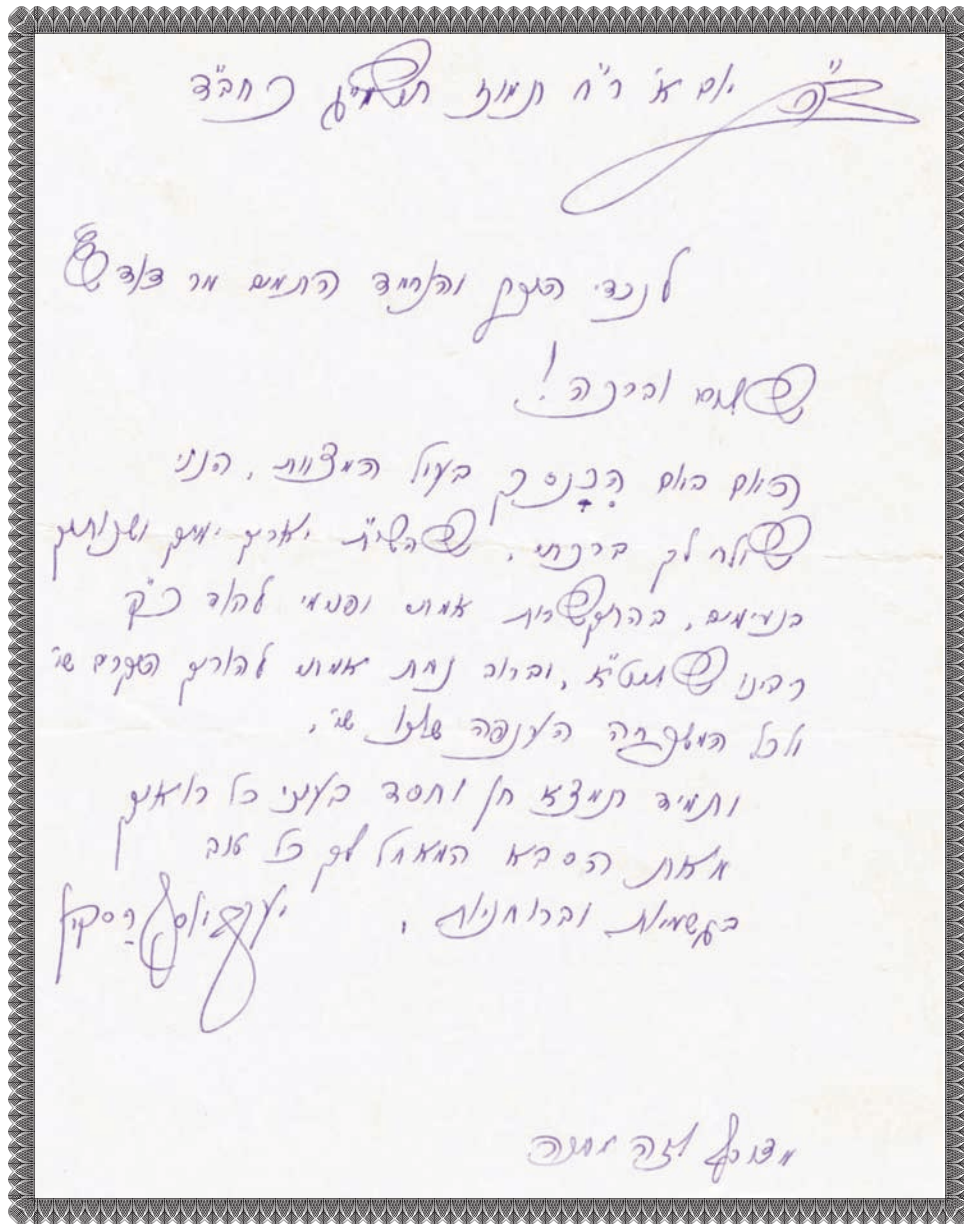 ב"ה יום א' ר"ח תמוז תשמ"ג כחב"ד
לנכדי היקר והנחמד התמים מר דוד ש
שלום וברכה!
היום ביום הכנסך בעול המצוות, הנני
שולח לך ברכתי, שהשי"ת יאריך ימיך ושנותיך
בנעימים, בהתקשרות אמתי ופנימי להוד כ"ק
רבינו שליט"א, וברוב נחת אמתי להוריך היקרים שי'
ולכל המשפחה הענפה שלנו שי',
ותמיד תמצא חן וחסד בעיני כל רואיך
מאת הסבא המאחל לך כל טוב
בגשמיות וברוחניות, יעקב יוסף רסקין
מצורף לזה מתנה